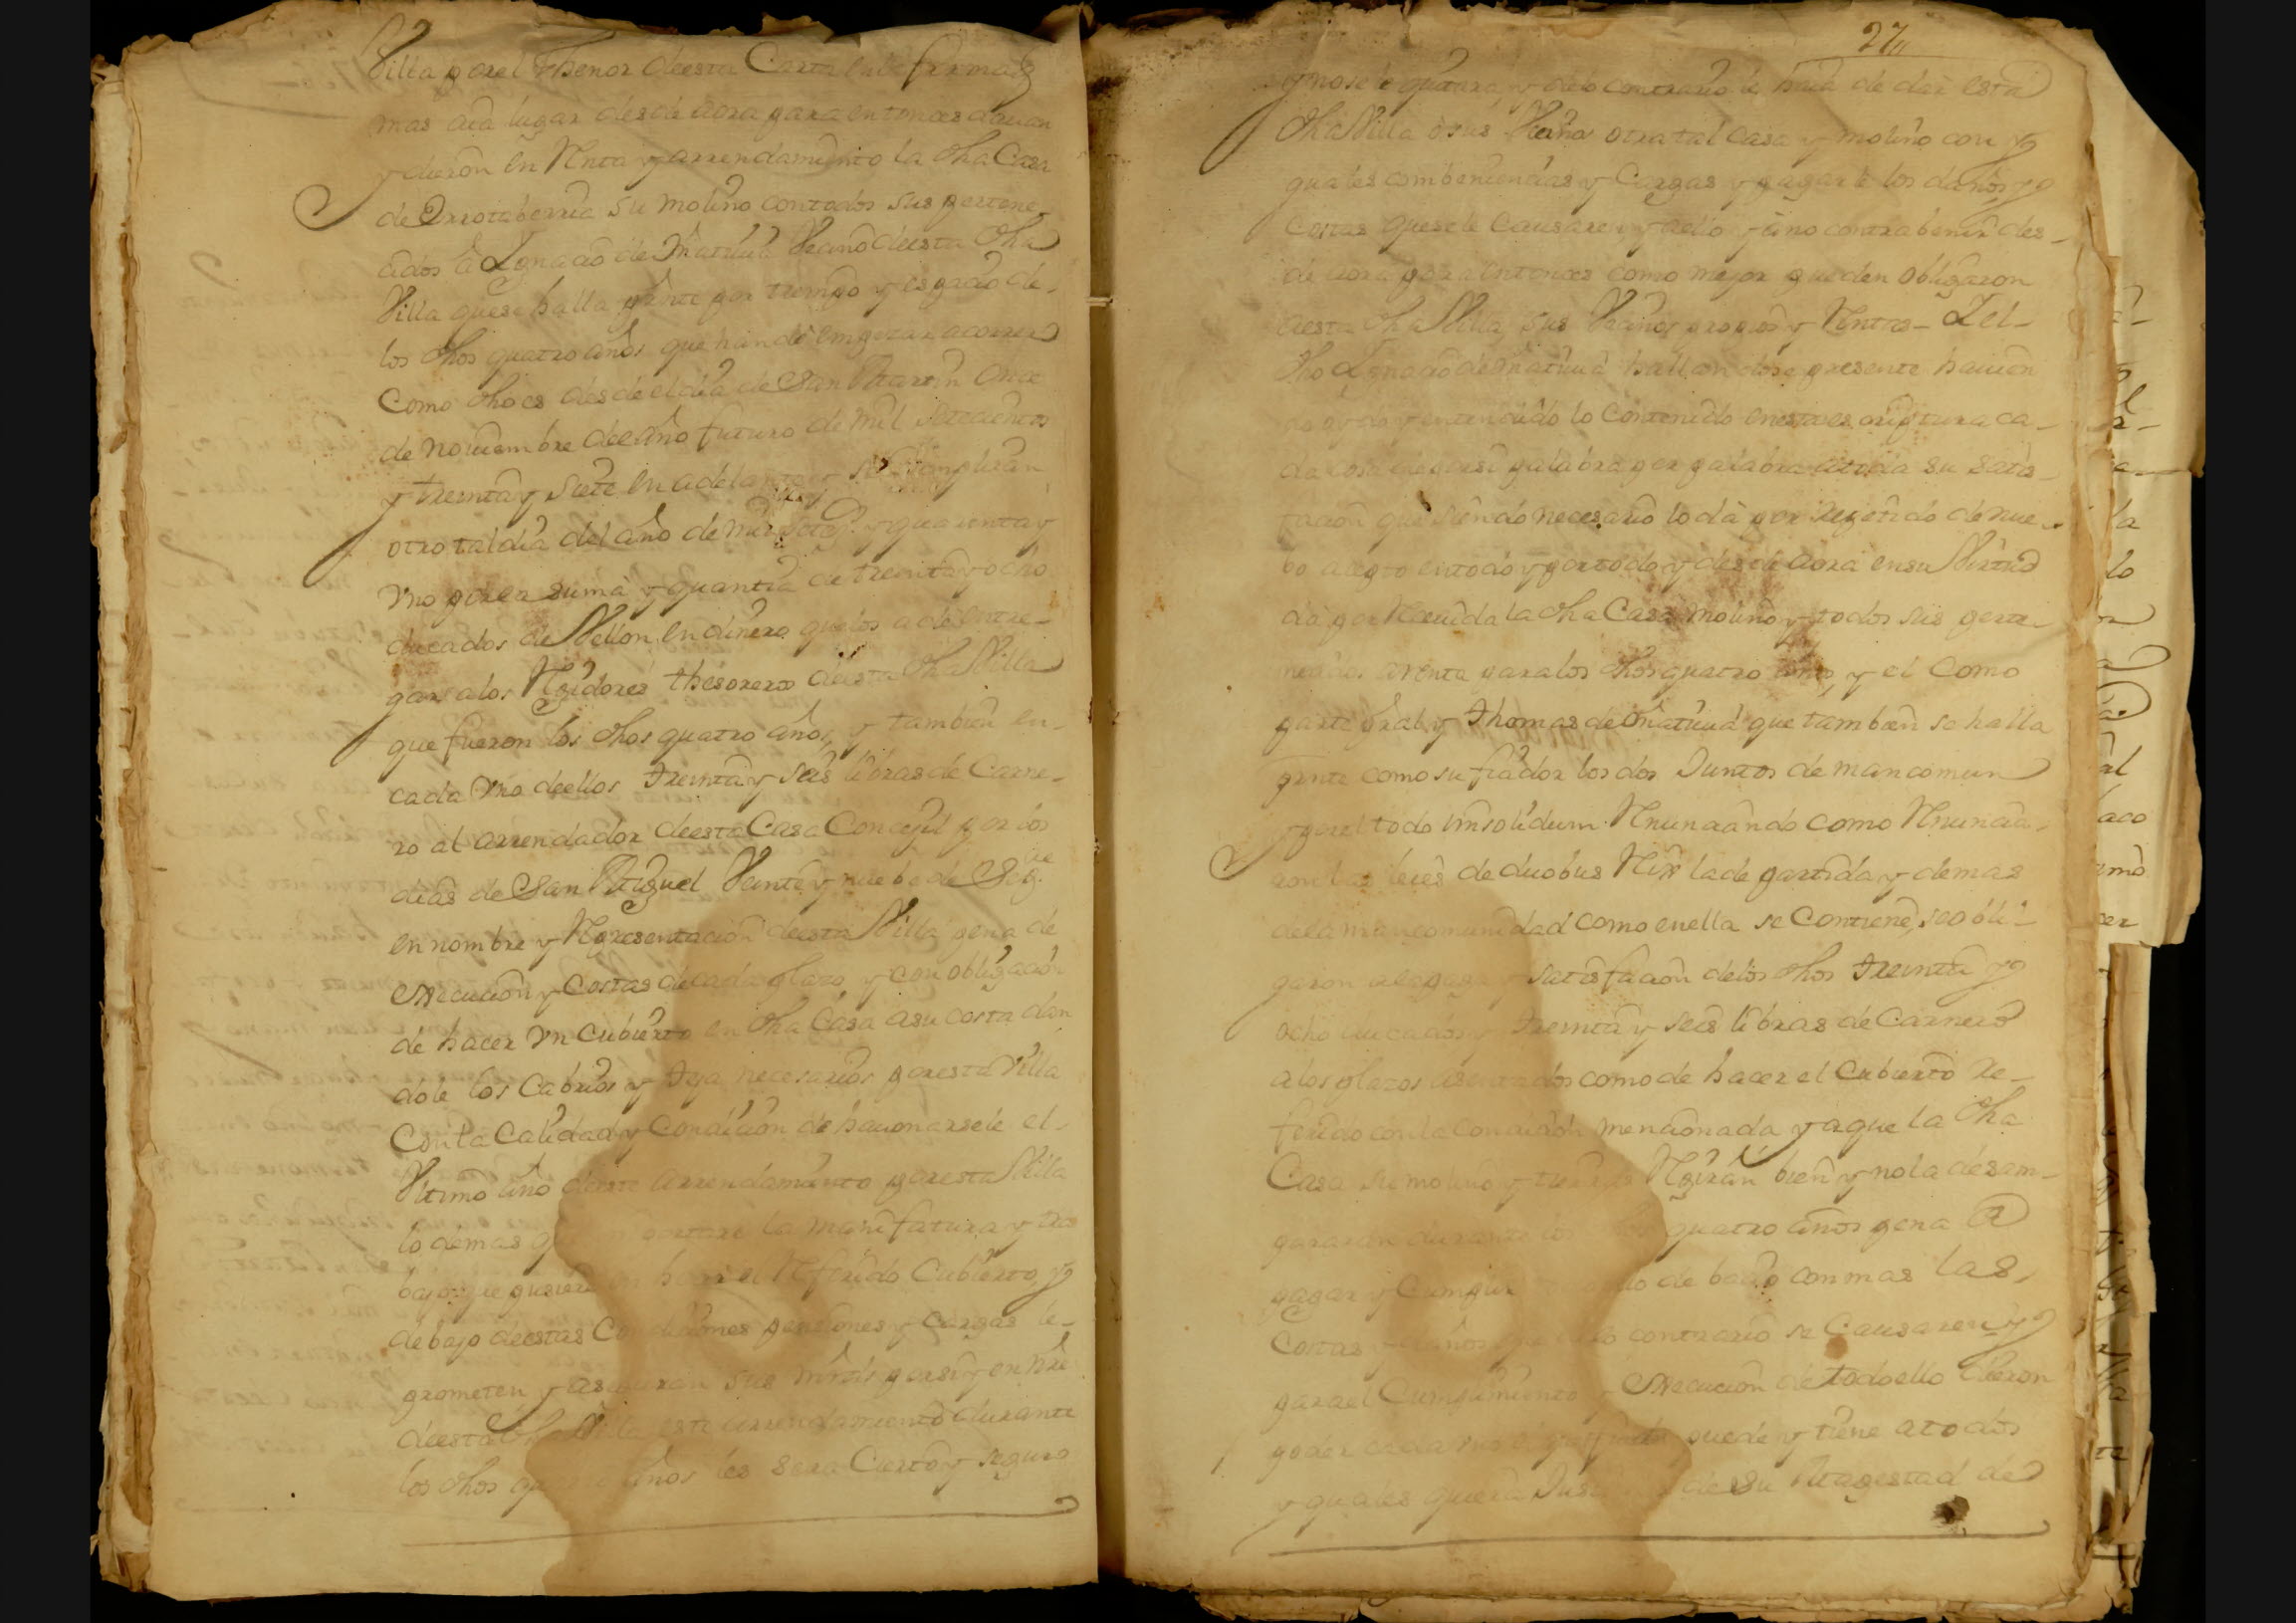 Villa por el thenor de esta Carta en la forma q
mas aia lugar desde aora para entonces dauan
y dieron en Renta y arrendamiento la dha Casa
de Errotaberria su molino con todos sus pertene-
cidos a Ignacio de Vecino de esta dha
Villa que se halla preste por tiempo y espacio de-
los dhos quatro años que han de empezar a correr
Como dho es desde el dia de San Martin onze
de nouiembre del año futuro de mil setecientos
y treinta y siete en adelante y se Cumpliran
otro tal dia del año de mil setezs. y quarenta y
vno por la suma y quantia de treinta y ocho
ducados de Vellon en dinero que los a de entre-
gar a los Rexidores thesoreros de esta dha Villa
que fueron los dhos quatro años, y tambien en-
cada vno de ellos treinta y seis libras de Carne-
ro al arrendador de esta Casa Concejil por los
dias de San Miguel Veinte y nuebe de Sepre.
en nombre y Representacion de esta Villa pena de
execucion y Costas de cada plazo, y con obligacion
de hacer vn Cubierto en dha Casa a su costa dan
dole los Cabrios y teja necesarios por esta Villa
Con la Calidad y Condicion de hauonarsele el-
Vltimo año de este arrendamiento por esta Villa
lo demas la manifatura y tra
bajo que pusiere en hacer el Referido Cubierto, y
debajo de estas Condiciones pensiones y Cargas le-
prometen y aseguran sus mrds por si y en nre
de esta dha Villa este arrendamiento durante
los dhos quatro años les sera Cierto y seguro
27
y no se le quitara, y de lo contrario le haia de dar esta
dha Villa o sus Vecinos otra tal Casa y molino con y
guales combeniencias y Cargas y pagarle los daños y
Costas que se le Causaren y a ello y a no contrabenir des-
de aora para entonces como mejor pueden obligaron
a esta dha Villa, sus Vecinos propios y Rentas- I el-
dho Ignacio de hallandose presente hauien
do oydo y entendido lo Contenido en esta escriptura ca-
da cosa de por si palabra por palabra a toda su satis-
facion que siendo necesario lo dà por Repetido de nue-
bo acepto en todo y por todo y desde aora en su Virtud
da por Reciuida la dha Casa molino y todos sus perte-
necidos a renta para los dhos quatro años, y el Como
parte pral y Thomas de que tambien se halla
preste como su fiador los dos Juntos de mancomun
y por el todo Imsolidum Renunciando como Renuncia-
ron las leies de duobus Rex la de partida y demas
de la mancomunidad como en ella se Contiene, se obli-
garon a la paga y satisfacion de los dhos treinta y
ocho ducados y treinta y seis libras de Carnero
a los plazos asentados como de hacer el Cubierto Re-
ferido con la Condicion mencionada y a que la dha
Casa su molino y tierras Regiran bien y no la desam-
pararan durante los dhos quatro años pena de
pagar y Cumplir de bacio con mas las
Costas y daños que de lo contrario se Causaren, y
para el Cumplimiento y Execucion de todo ello dieron
poder cada vno puede y tiene a todos
y quales quiera de Su Magestad de